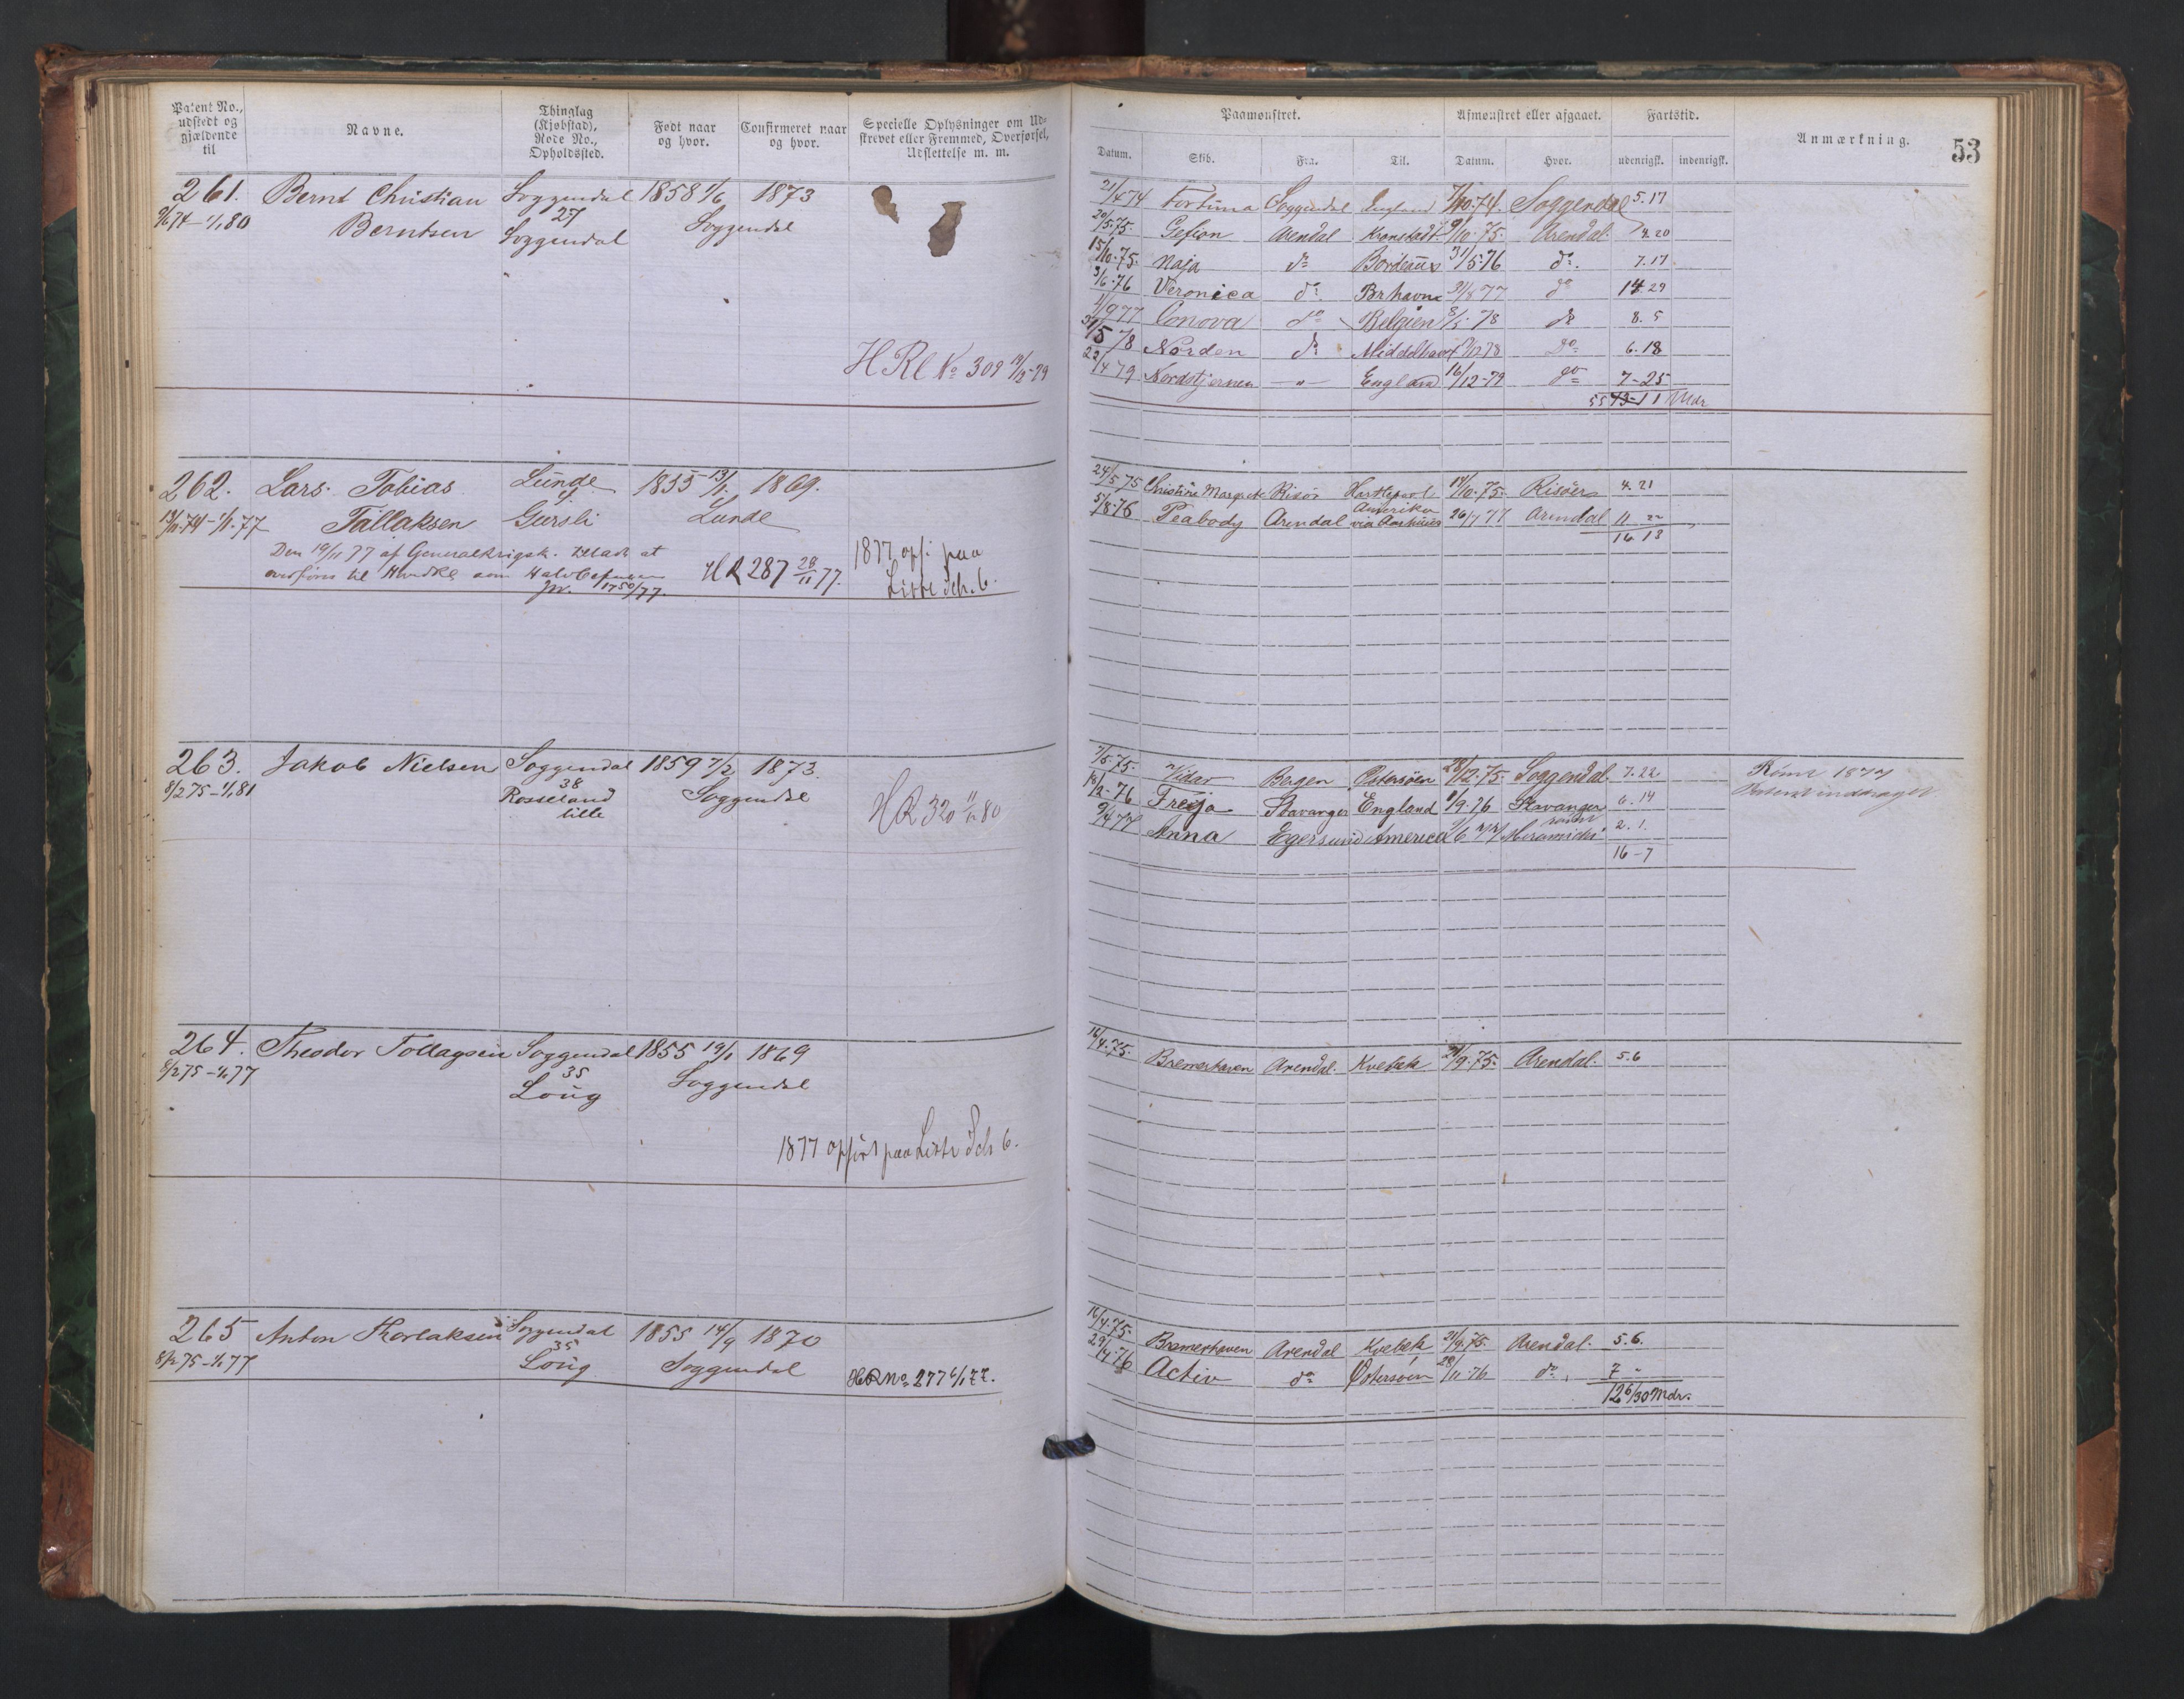 Patent No., udstedt og gjældende til
Navne.
Thinglag (Kjøbstad), Rode No., Opholdssted.
Født naar og hvor.
Confirmeret naar og hvor.
Specielle Oplysninger om Udstrevet eller Fremmed, Overførsel, Udslettelse m. m.
261. Bernt Christian Soggendal 1858 1873
Berntsen 27 Soggendal
Soggendal
HRl No 309 19/12-79
262. Lars Tobias Lunde 1855 13/1. 1869.
Tallaksen Gursli Lunde
Den 19/11 77 af Generalkrigsk. tilladt at
overføres til
HR 287 28/11 77.
1877 opf. paa
Liste Sch. 6.
263. Jakob Nielsen Soggendal 1859 7/2 1873.
8/2 75 - 1/1 81 38 Soggendal
Rosseland
lille
HR 320 11/11 80
264. Theodor Tollagsen Soggendal 1855 19/1 1869
8/2 75 - 1/1 77 35 Soggendal
Loug
1877 opført paa Liste Sch 6.
265 Anton Thorlaksen Soggendal 1855 14/9 1870
8/2 75 - 1/1 77 35 Soggendal
Loug
HR No 277 6/1 77.
Paamønstret.
Afmønstret eller afgaaet.
Fartstid.
Anmærkning.
53
Datum. Skib. Fra. Til. Datum. Hvor. udenrigsk. indenrigsk.
21/4 74 Fortuna Soggendal England 7/10.74. Soggendal 5.17
20/5.75. Gefion Arendal Kronstadt 9/10.75. Arendal. 4.20
15/10.75. Naja do Bordeaux 31/5 76 do. 7.17
3/6.76 Veronica do Brhavn 31/8 77 do 14 29
1/9 77 do Belgien 8/5.78 do 8.5
31/5 78 Norden do Middelhavet 78 do 6.18
22/4 79 Nordstjernen — " — England 16/12-79 do 7-25
55 11 Mdr
24/5 75 Christine Margrete Risør Hartlepool 14/10.75. Risøer 4.21
5/8.76 Peabody Arendal Amerika via Aarhuus 26/7 77 Arendal 11 22
16 13
7/5.75. Vidar Bergen Østersøen 28/12.75. Soggendal 7.22
18/2.76 Freija Stavanger England 1/9.76 Stavanger 6.14
9/4 77 Anna Egersund America 77 Miramichi 2.1.
16-7
Rømt 1877
Patent inddraget
16/4.75. Bremerhaven Arendal. Kvebek 21/9.75. Arendal. 5.6
16/4.75. Bremerhaven Arendal Kvebek 21/9.75. Arendal. 5.6.
29/4.76 Activ do Østersøen 28/11.76 do. 7 "
12 6/30 Mdr.